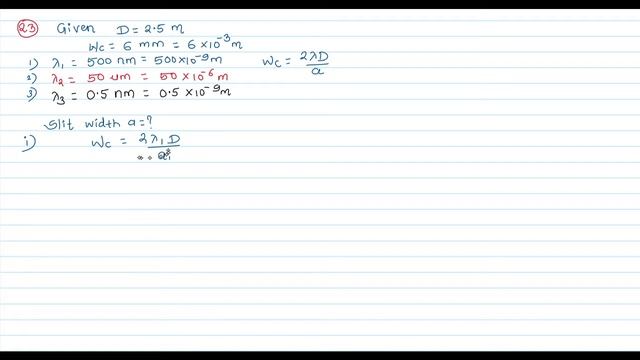 23 Given D = 2.5 m
Wc = 6 mm = 6 ×10⁻³ m
1) λ₁ = 500 nm = 500×10⁻⁹ m Wc = 2λD/a
2) λ₂ = 50 um = 50 ×10⁻⁶ m
3) λ₃ = 0.5 nm = 0.5 ×10⁻⁹ m
Slit width a = ?
i) Wc = 2λ₁D/a₁